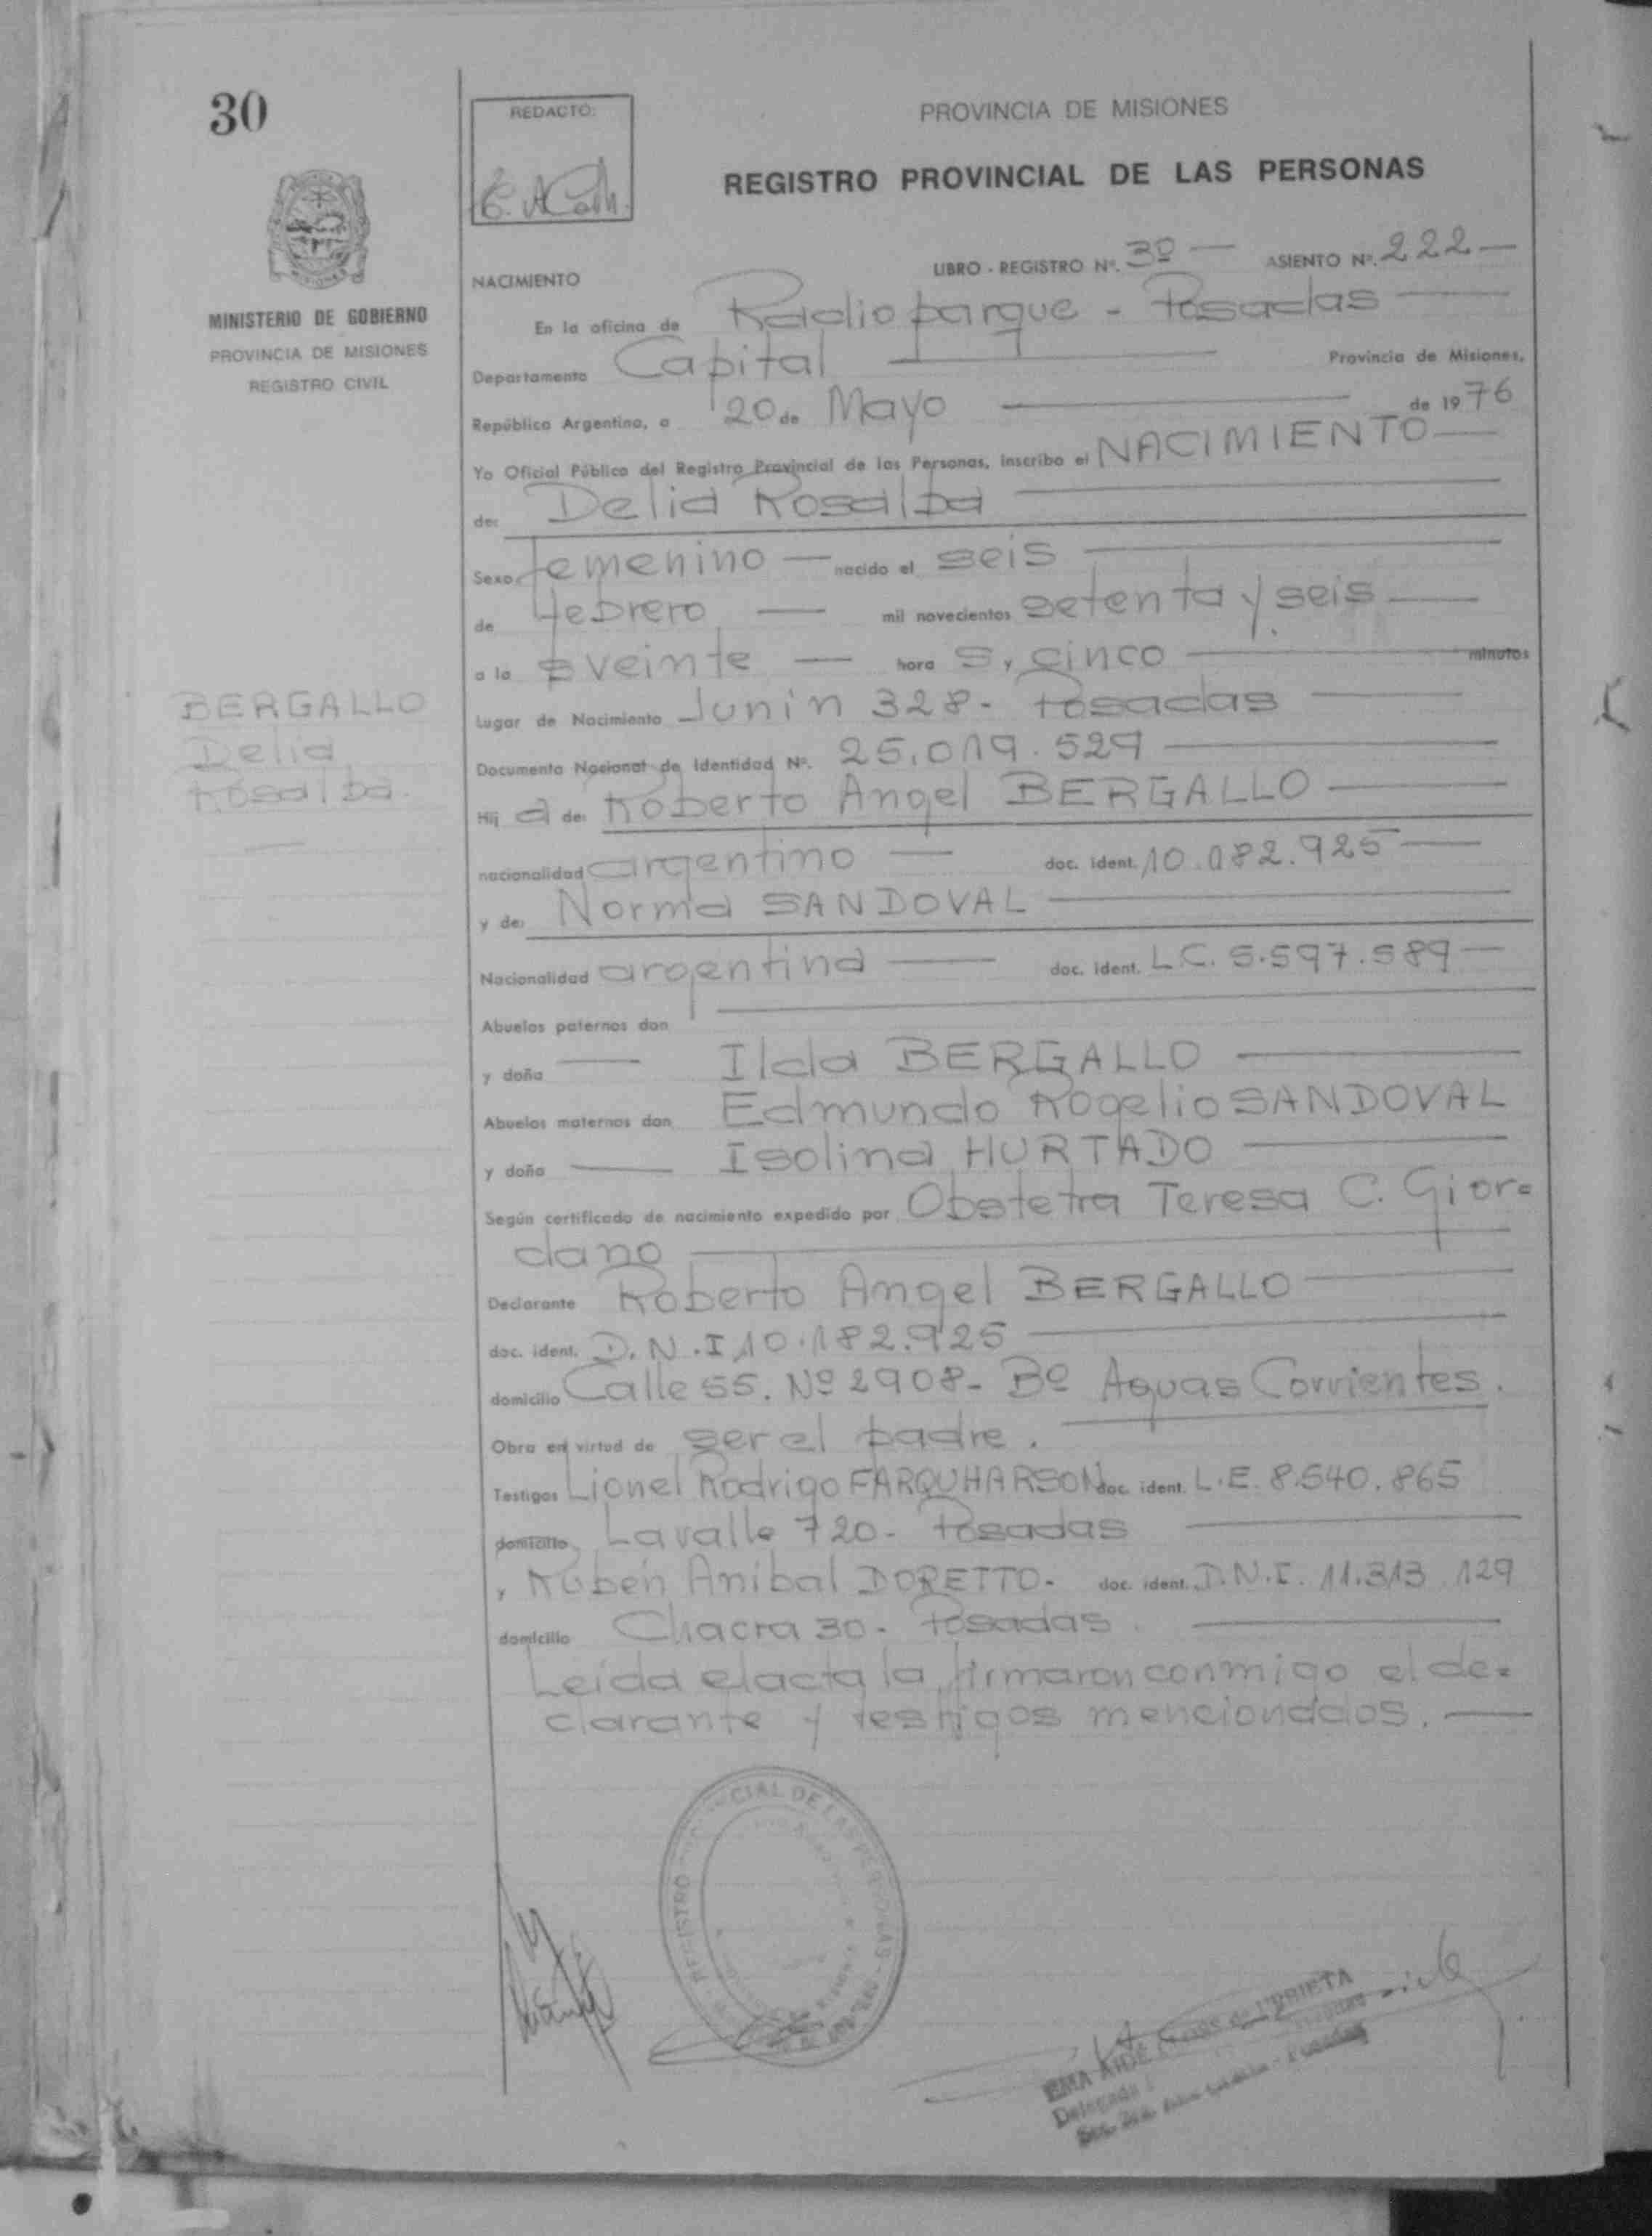 30
REDACTÓ:
PROVINCIA DE MISIONES
REGISTRO PROVINCIAL DE LAS PERSONAS
MINISTERIO DE GOBIERNO
PROVINCIA DE MISIONES
REGISTRO CIVIL
NACIMIENTO LIBRO - REGISTRO Nº. 3º — ASIENTO Nº. 222 —
En la oficina de Radioparque - Posadas —
Departamento Capital — Provincia de Misiones,
República Argentina, a 20 de Mayo — de 1976
Yo Oficial Público del Registro Provincial de las Personas, inscribo el NACIMIENTO —
de: Delia Rosalba —
Sexo: femenino — nacido el seis —
de febrero — mil novecientos setenta y seis —
a la s veinte — hora s, cinco — minutos
BERGALLO
Delia
Rosalba.
Lugar de Nacimiento Junín 328 - Posadas —
Documento Nacional de Identidad Nº. 25.019.529 —
Hij a de: Roberto Angel BERGALLO —
nacionalidad argentino — doc. ident. 10.182.925 —
y de: Norma SANDOVAL —
Nacionalidad argentina — doc. ident. L.C. 5.597.589 —
Abuelos paternos don —
y doña — Ilda BERGALLO —
Abuelos maternos don Edmundo Rogelio SANDOVAL
y doña — Isolina HURTADO —
Según certificado de nacimiento expedido por Obstetra Teresa C. Gior=
dano —
Declarante Roberto Angel BERGALLO —
doc. ident. D.N.I 10.182.925 —
domicilio Calle 55. Nº 2908 - Bº Aguas Corrientes.
Obra en virtud de ser el padre.
Testigos Lionel Rodrigo FARQUHARSON doc. ident. L.E. 8.540.865
domicilio Lavalle 720 - Posadas —
y Rubén Aníbal DORETTO - doc. ident. D.N.I. 11.313.129
domicilio Chacra 30 - Posadas. —
Leída el acta la firmaron conmigo el de=
clarante y testigos mencionados. —
REGISTRO PROVINCIAL DE LAS PERSONAS